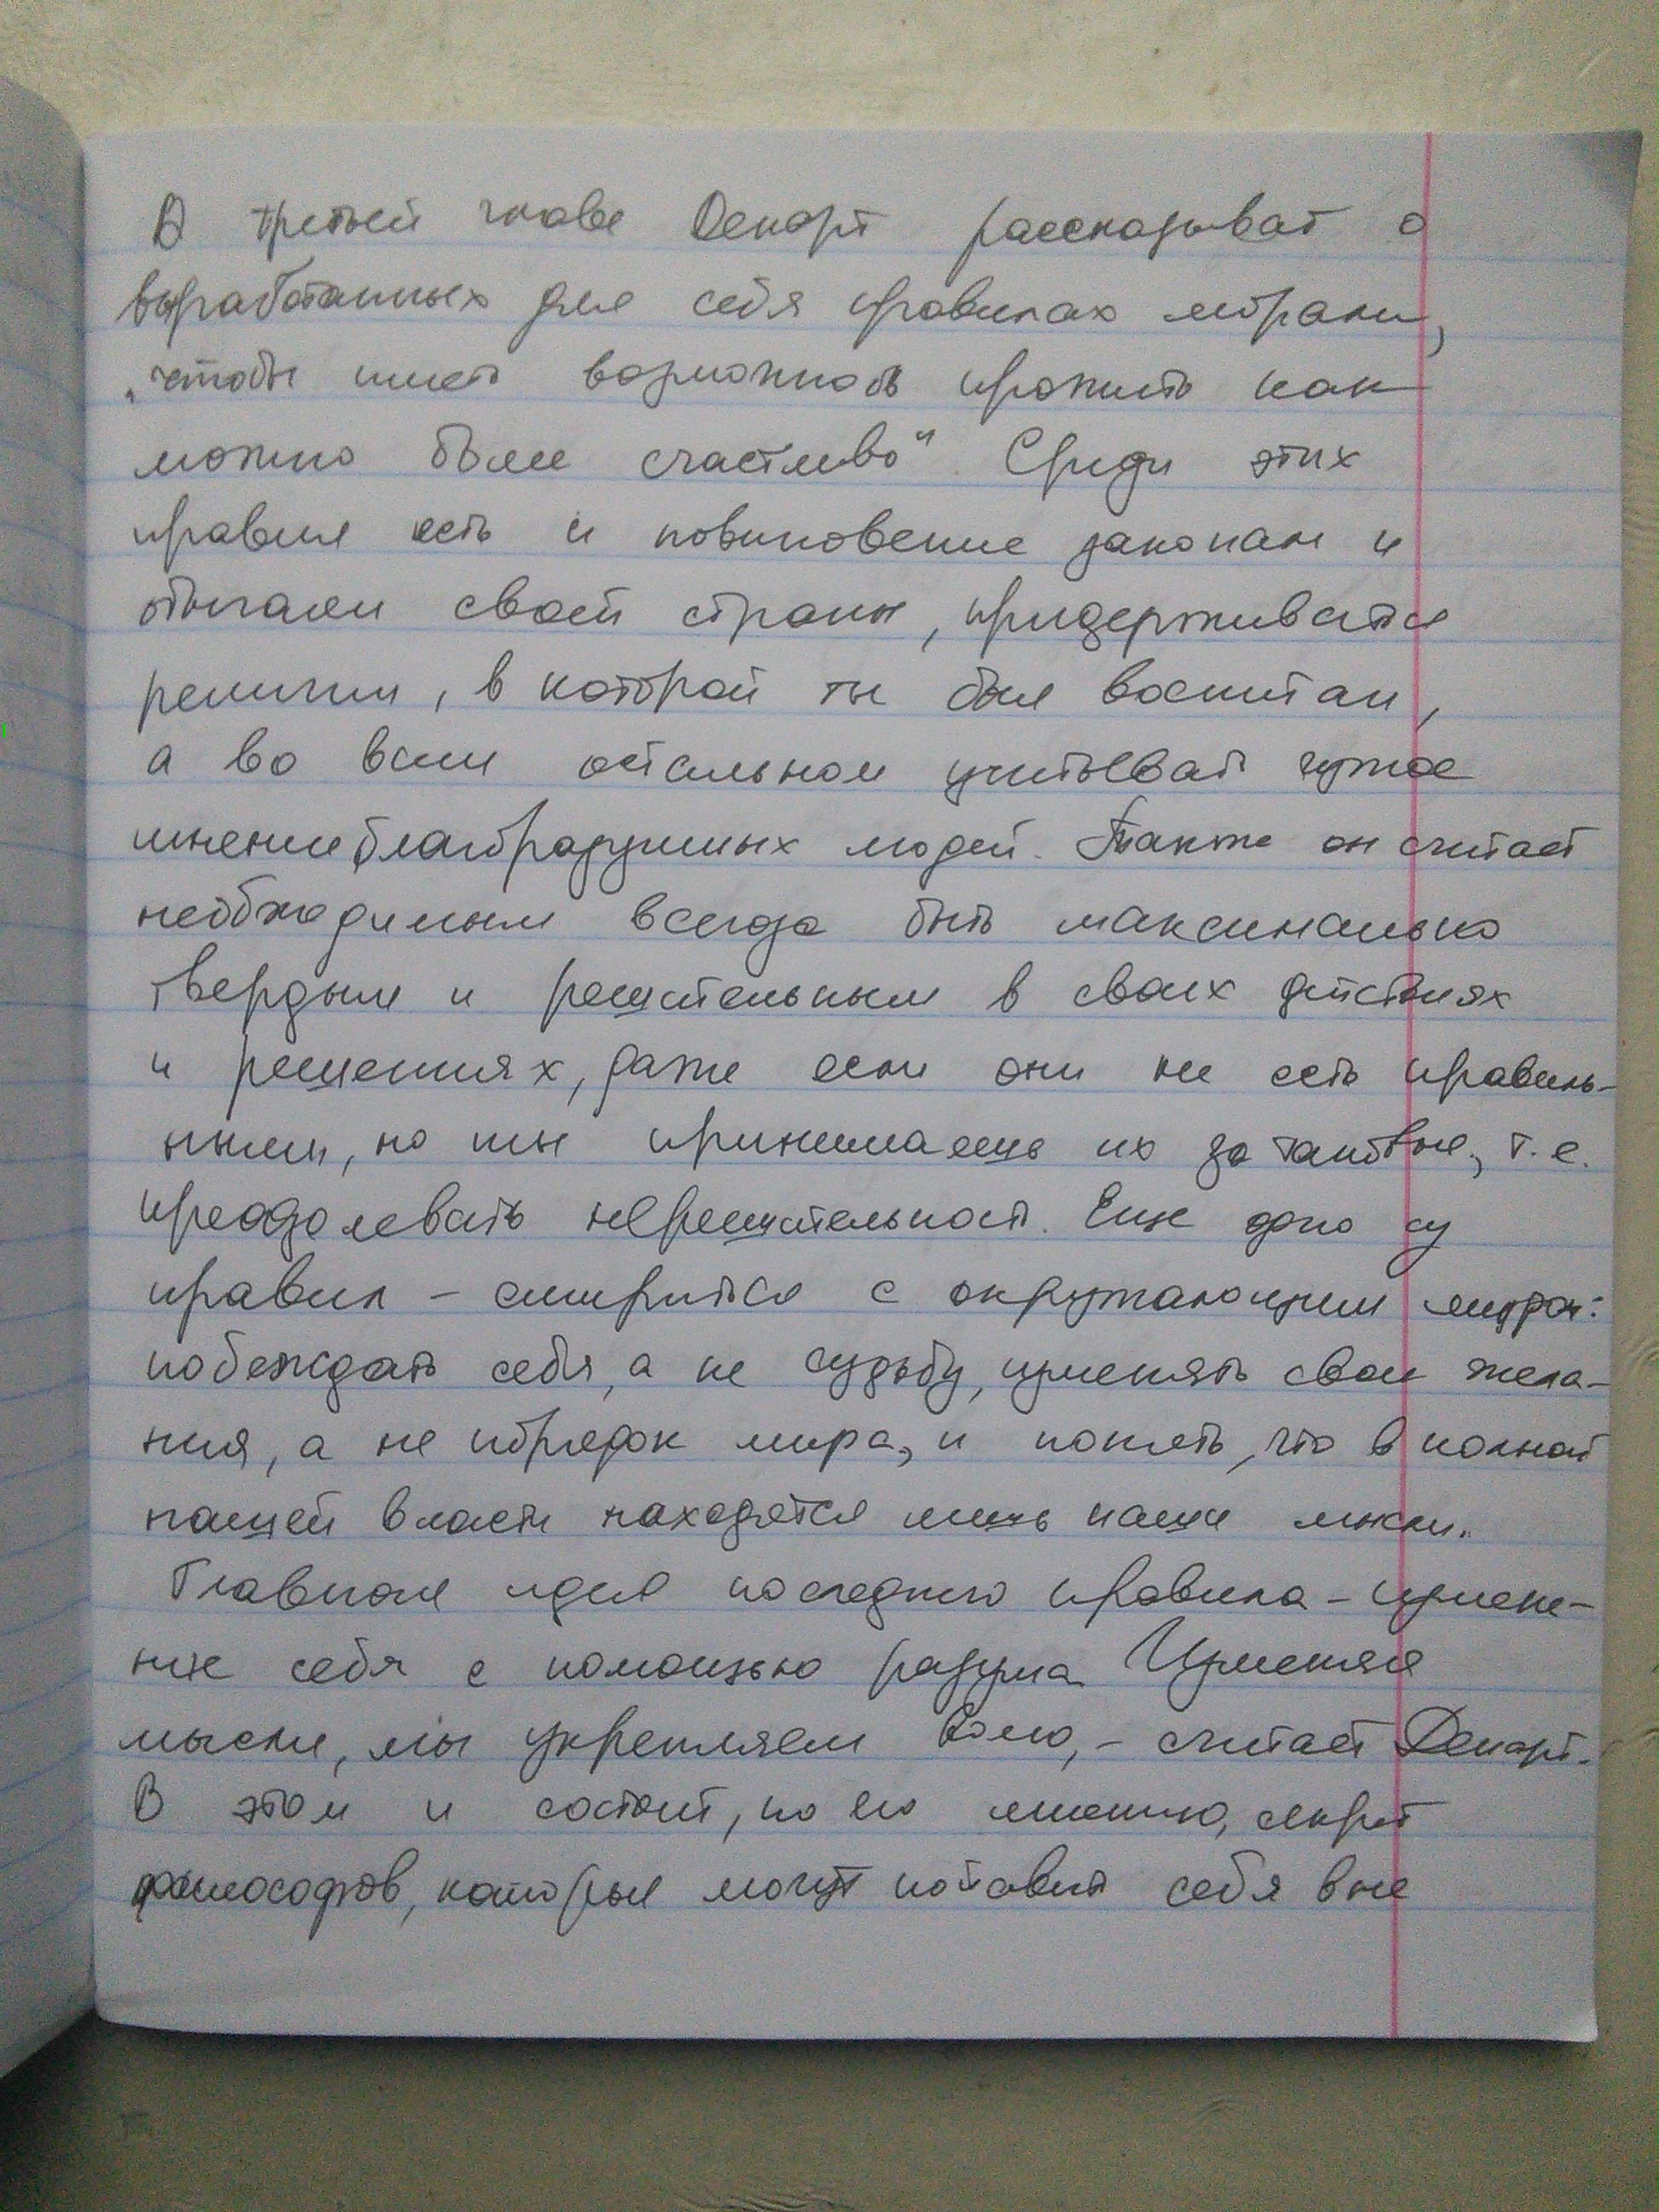 В третьей главе Декарт рассказывает о
выработанных для себя правилах морали,
„чтобы иметь возможность прожить как
можно более счастливо“. Среди этих
правил есть и повиновение законам и
обычаям своей страны, придерживаться
религии, в которой ты был воспитан,
а во всем остальном учитывать чужое
мнение благоразумных людей. Также он считает
необходимым всегда быть максимально
твердым и решительным в своих действиях
и решениях, даже если они не есть правиль-
ными, но ты принимаешь их за таковые, т.е.
преодолевать нерешительность. Еще одно из
правил – смириться с окружающим миром:
побеждать себя, а не судьбу, изменять свои жела-
ния, а не порядок мира, и понять, что в полной
нашей власти находятся лишь наши мысли.
Главная идея последнего правила – измене-
ние себя с помощью разума. Изменяя
мысли, мы укрепляем волю, – считает Декарт.
В этом и состоит, по его мнению, секрет
философов, которые могут поставить себя вне